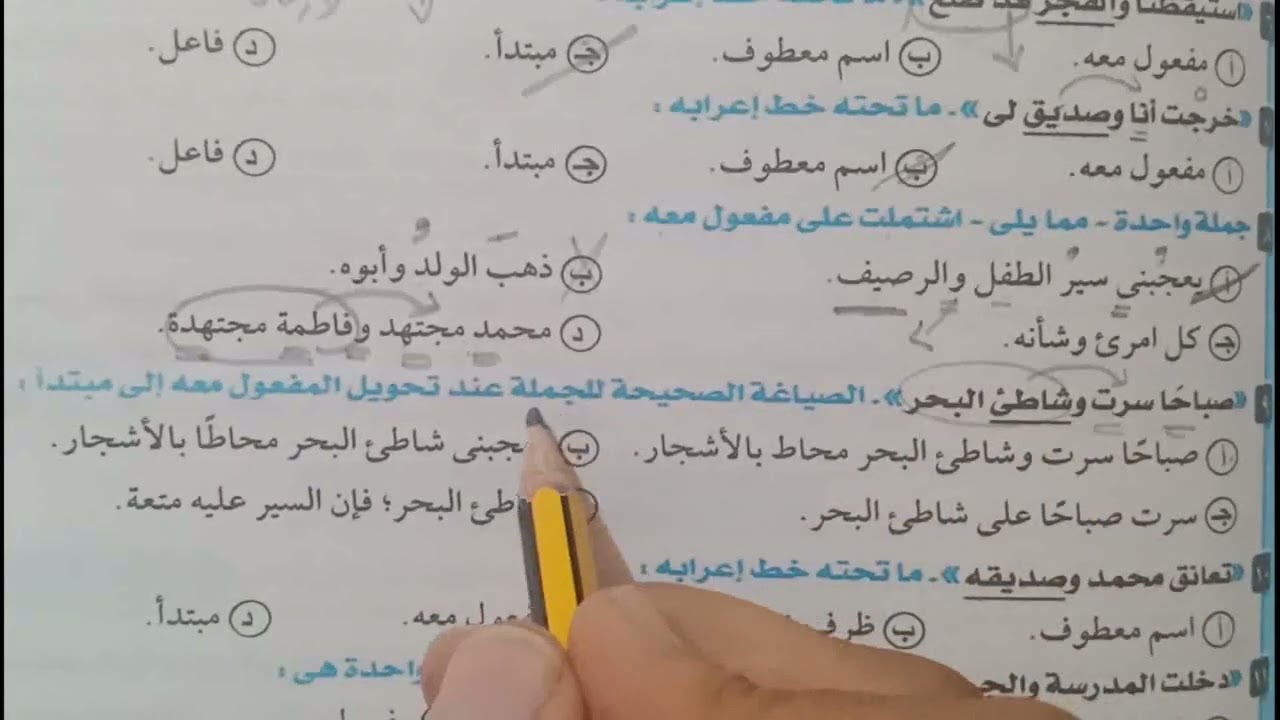 «استيقظنا والفجر قد طلع»
أ مفعول معه. ب اسم معطوف. جـ مبتدأ. د فاعل.
«خرجت أنا وصديق لى» - ما تحته خط إعرابه :
أ مفعول معه. ب اسم معطوف. جـ مبتدأ. د فاعل.
٨ جملة واحدة - مما يلى - اشتملت على مفعول معه :
أ يعجبنى سيرُ الطفل والرصيف. ب ذهبَ الولدُ وأبوه.
جـ كل امرئ وشأنه. د محمد مجتهد وفاطمة مجتهدة.
٩ «صباحًا سرت وشاطئ البحر» - الصياغة الصحيحة للجملة عند تحويل المفعول معه إلى مبتدأ :
أ صباحًا سرت وشاطئ البحر محاط بالأشجار. ب شاطئ البحر محاطًا بالأشجار.
جـ سرت صباحًا على شاطئ البحر. البحر؛ فإن السير عليه متعة.
١٠ «تعانق محمد وصديقه» - ما تحته خط إعرابه :
أ اسم معطوف. ب معه. د مبتدأ.
«دخلت المدرسة واحدة هى :